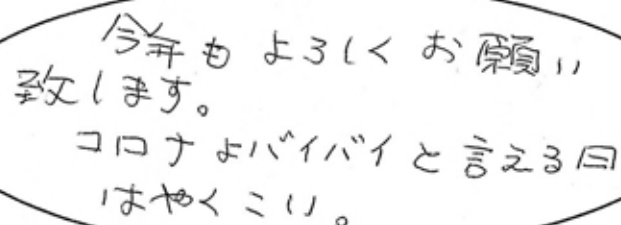 今年も よろしく お願い
致します。
コロナよバイバイと言える日
はやくこい。